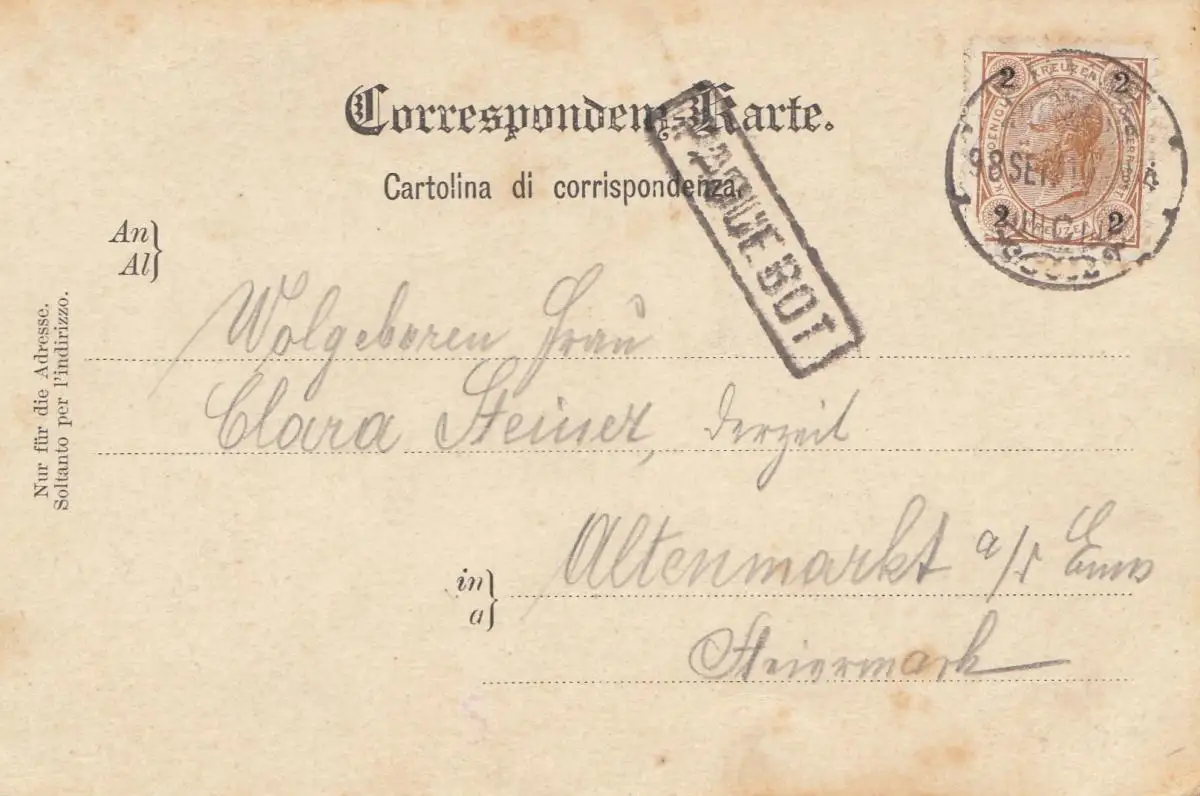 Correspondenz-Karte.
Cartolina di corrispondenza.
PAQUEBOT
2 KREUZER 2
98 SEP
2 KREUZER 2
An
Al
Wolgeboren Frau
Clara Steiner, derzeit
in
a
Altenmarkt a/d Enns
Steiermark
Nur für die Adresse.
Soltanto per l'indirizzo.